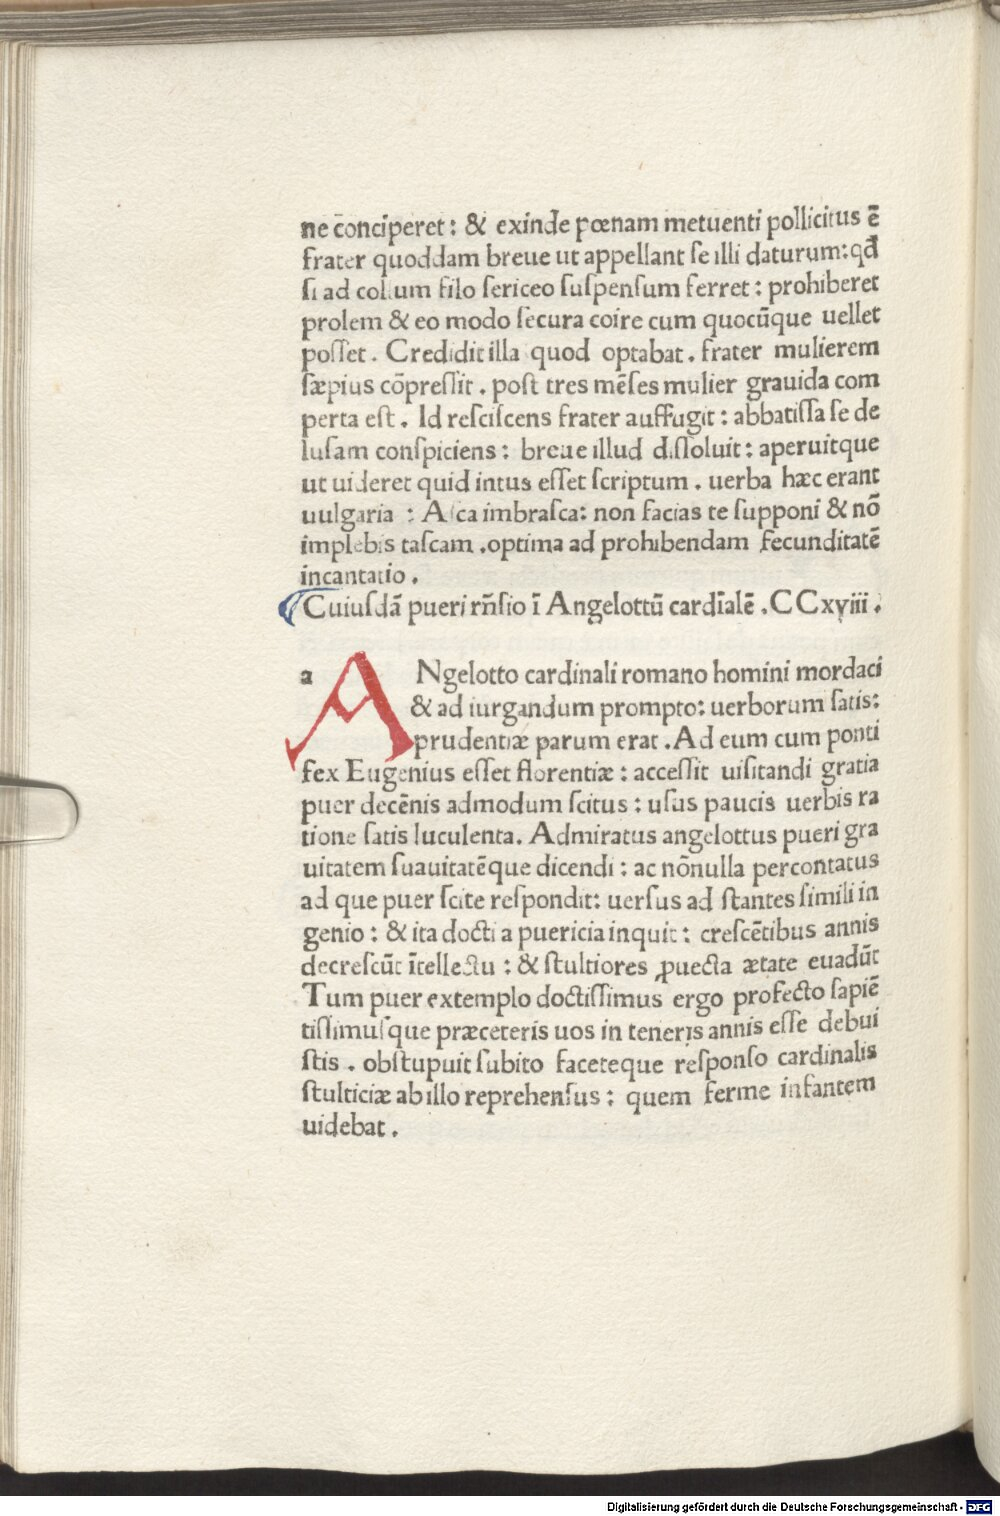 ne cōnciperet: & exinde pœnam metuenti pollicitus ē
frater quoddam breue ut appellant ſe illi daturum: qđ
ſi ad collum filo ſericeo ſuſpenſum ferret: prohiberet
prolem & eo modo ſecura coire cum quocūque uellet
poſſet. Credidit illa quod optabat. frater mulierem
ſæpius cōpreſſit. poſt tres mēſes mulier grauida com
perta eſt. Id reſciſcens frater auffugit: abbatiſſa ſe de
luſam conſpiciens: breue illud diſſoluit: aperuitque
ut uideret quid intus eſſet ſcriptum. uerba hæc erant
uulgaria: Aſca imbraſca: non facias te ſupponi & nō
implebis taſcam. optima ad prohibendam fecunditatē
incantatio.
Cuiuſdā pueri rn̄ſio ī Angelottū cardīalē. CCxviii.
a ANgelotto cardinali romano homini mordaci
& ad iurgandum prompto: uerborum ſatis:
prudentiæ parum erat. Ad eum cum ponti
fex Eugenius eſſet florentiæ: acceſſit uiſitandi gratia
puer decēnis admodum ſcitus: uſus paucis uerbis ra
tione ſatis luculenta. Admiratus angelottus pueri gra
uitatem ſuauitatēque dicendi: ac nōnulla percontatus
ad que puer ſcite reſpondit: uerſus ad ſtantes ſimili in
genio: & ita docti a puericia inquit: creſcētibus annis
decreſcūt ītellectu: & ſtultiores ꝓuecta ætate euadūt
Tum puer extemplo doctiſſimus ergo profecto ſapiē
tiſſimuſque præceteris uos in teneris annis eſſe debui
ſtis. obſtupuit ſubito faceteque reſponſo cardinalis
ſtulticiæ ab illo reprehenſus: quem ferme infantem
uidebat.
Digitalisierung gefördert durch die Deutsche Forschungsgemeinschaft - DFG